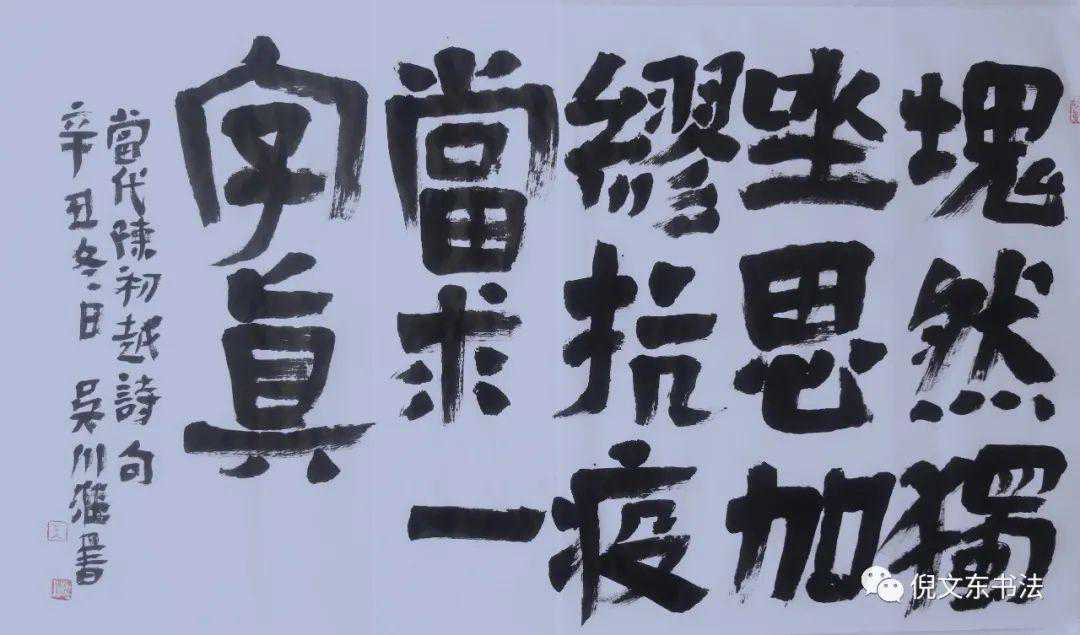 塊然獨
坐思加
繆抗疫
當求一
字真
當代陳初越詩句
辛丑冬日 吳川淮書
倪文东书法